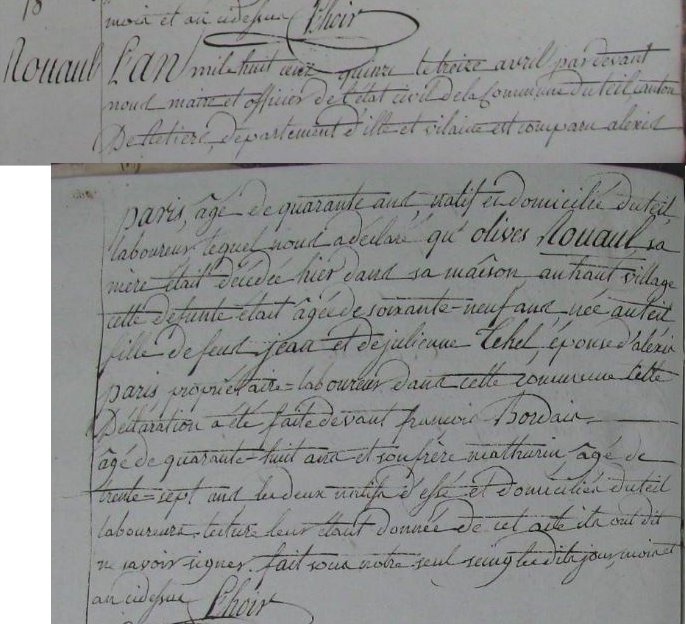 18
mois et an cidessus Choir
Rouaul
L'an mil huit cent quinze le treize avril par devant
nous maire et officier de l'état civil de la Commune du teil, canton
De Retiers, département d'ille et vilaine est comparu alexis
paris, âgé de quarante ans natif et domicilié du teil,
laboureur lequel nous a déclaré qu' olives Rouaul sa
mère était décédée hier dans sa maison au haut village
cette defunte était âgée de soixante-neuf ans née au teil
fille de feus jean et de julienne tehel, épouse d'alexis
paris propriétaire=laboureur dans cette commune Cette
Déclaration a été faite devant francois Bordais
âgé de quarante-huit ans et son frère mathurin âgé de
trente=sept ans les deux natifs d'essé et domiciliés du teil
laboureurs. lecture leur étant donnée de cet acte ils ont dit
ne savoir signer. fait sous notre seul seing les dits jour, mois et
an cidessus Choir